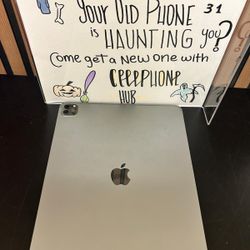 Your Old Phone 31
is HAUNTING you?
Come get a New one with
CEEEPHONE
HUB